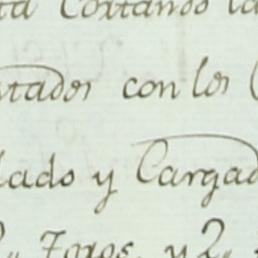 ta Cortando la
ntados con los
lado y Cargad
2„ Toros, y 2„